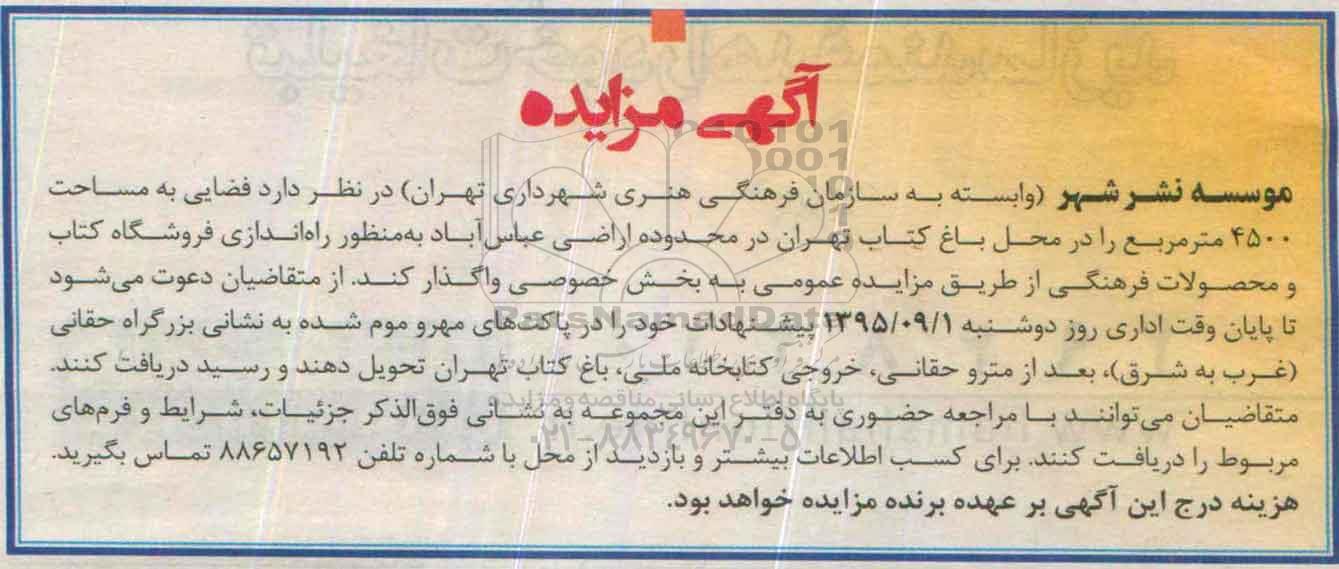 آگهی مزایده
موسسه نشر شهر (وابسته به سازمان فرهنگی هنری شهرداری تهران) در نظر دارد فضایی به مساحت
۴۵۰۰ مترمربع را در محل باغ کتاب تهران در محدوده اراضی عباس‌آباد به‌منظور راه‌اندازی فروشگاه کتاب
و محصولات فرهنگی از طریق مزایده عمومی به بخش خصوصی واگذار کند. از متقاضیان دعوت می‌شود
تا پایان وقت اداری روز دوشنبه ۱۳۹۵/۰۹/۱ پیشنهادات خود را در پاکت‌های مهرو موم شده به نشانی بزرگراه حقانی
(غرب به شرق)، بعد از مترو حقانی، خروجی کتابخانه ملی، باغ کتاب تهران تحویل دهند و رسید دریافت کنند.
متقاضیان می‌توانند با مراجعه حضوری به دفتر این مجموعه به نشانی فوق‌الذکر جزئیات، شرایط و فرم‌های
مربوط را دریافت کنند. برای کسب اطلاعات بیشتر و بازدید از محل با شماره تلفن ۸۸۶۵۷۱۹۲ تماس بگیرید.
هزینه درج این آگهی بر عهده برنده مزایده خواهد بود.
ParsNamadData
پایگاه اطلاع رسانی مناقصه و مزایده
۰۲۱-۸۸۳۴۹۶۷۰-۵